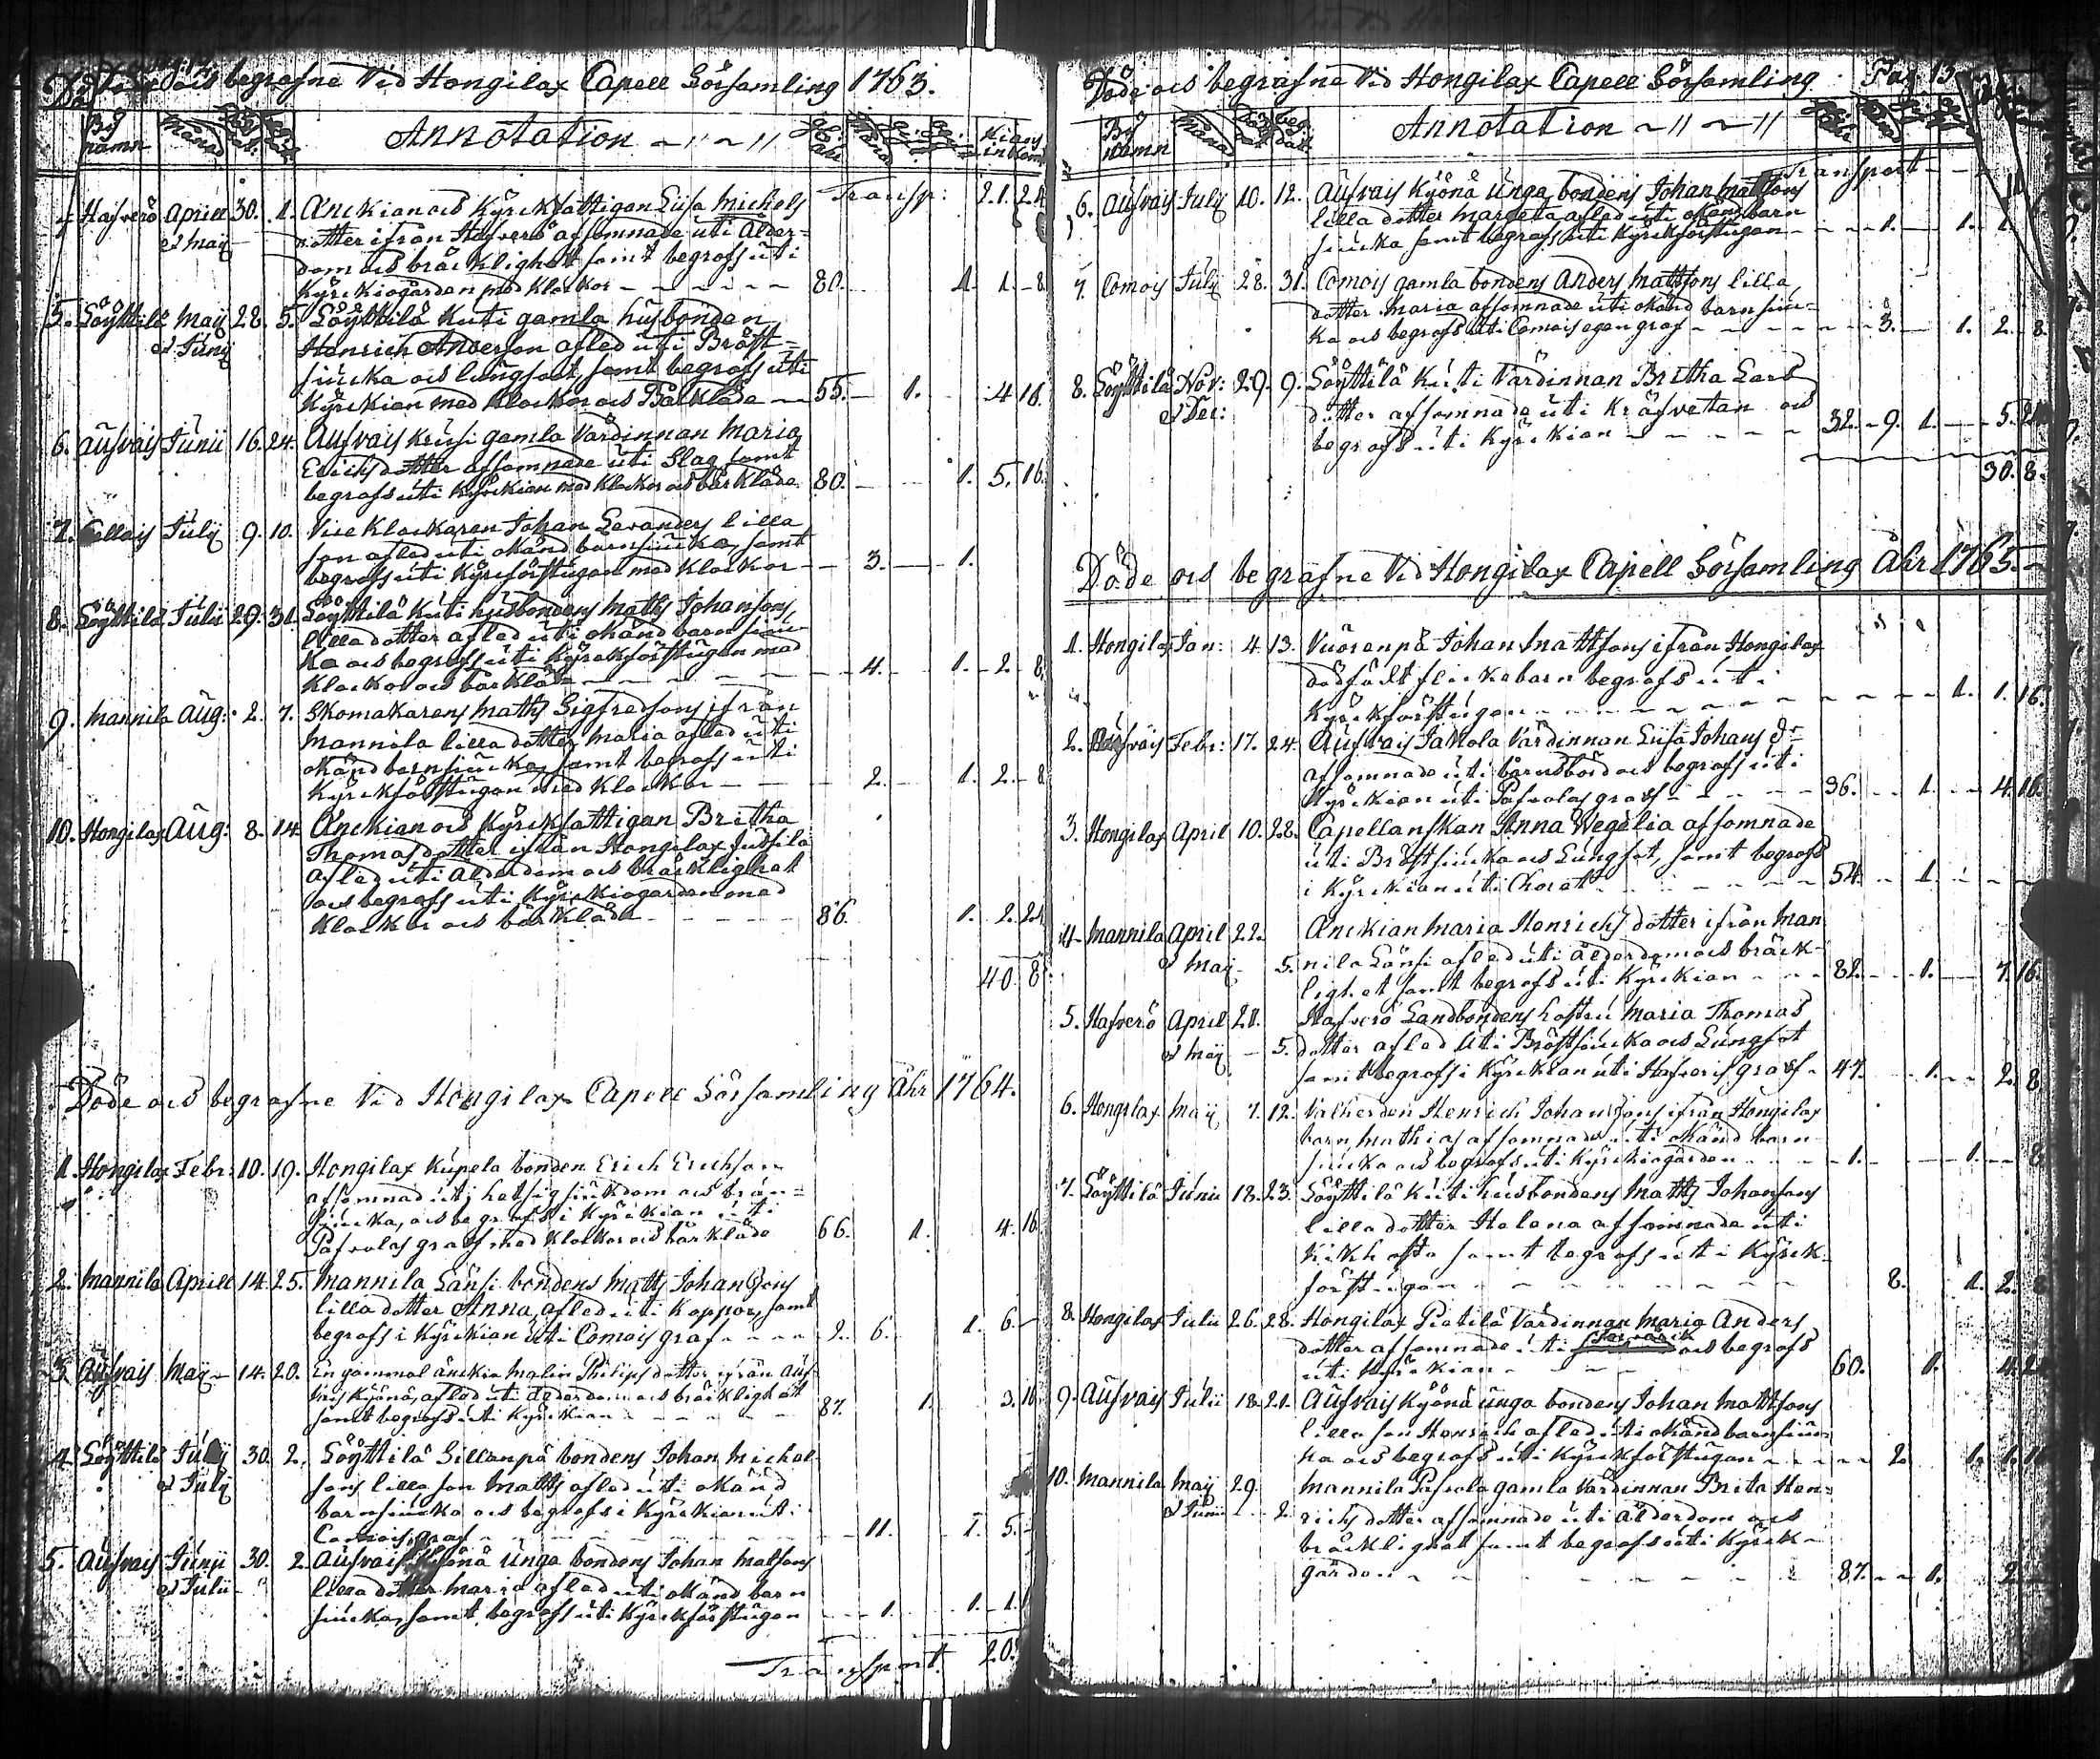 Döde och begrafne Vid Hongilax Capell Församling 1763.
By namn Månad Annotation
Transp: 2. 1. 24
4. Hafverö Aprill 30. 1. Änckian och Kÿrckfattigan Lisa Michels
et Maij dotter ifrån Hafverö afsomnade uti Ålder=
dom och bräcklighet samt begrofs uti
Kÿrckiogården med Klockor 80. 1. 1. 8.
5. Löÿttilä Maij 28. 5. Löÿttilä Kuti gamla husbonden
et Junij Henrich Anderson afled uti Bröst=
siucka och lungsot, samt begrofs uti
Kÿrckian med Klockor och Bårkläde 55. 1. 4 16.
6. Aufvais Junii 16. 24. Aufvais Krusi gamla Värdinnan Maria
Erichsdotter afsomnade uti Slag samt
begrofs uti Kÿrckian med Klockor och bårkläde 80. 1. 5. 16.
7. Julij 9. 10. Vice Klockaren Johan Levanders lilla
son afled uti okänd barnsiucka, samt
begrofs uti Kÿrckförstugan med Klockor 3. 1.
8. Löÿttilä Julii 29. 31. Löÿttilä Kuti husbondens Matts Johansons
lilla dotter afled uti okänd barnsiu-
ka och begrofs uti Kÿrckförstugan med
Klockor och bårkläde 4. 1. 2. 8.
9. Mannila Aug: 2. 7. Skomakarens Matts Sigfredsons ifrån
Mannila lilla dotter Maria afled uti
okänd barnsiucka samt begrofs uti
Kÿrckförstugan med Klockor 2. 1. 2. 8
10. Hongilax Aug: 8. 14. Änckian och Kÿrckfattigan Britha
Thomasdotter ifrån Hongilax Jussila
afled uti Ålderdom och bräcklighet
och begrofs uti Kÿrckiogården med
Klockor och bårkläde 86. 1. 2. 24
40 8
Döde och begrafne Vid Hongilax Capell Församling Åhr 1764.
1. Hongilax Febr: 10. 19. Hongilax Kupela bonden Erich Erichson
afsomnad uti hetsig siukdom och brän=
siucka, och begrofs i Kÿrckian uti
Pafvolas graf med Klockor och bårkläde 66. 1. 4. 16
2. Mannila Aprill 14. 25. Mannila Länsi bondens Matts Johansons
lilla dotter Anna, afled uti Koppor, samt
begrofs i Kÿrckian uti Comois graf 2. 6. 1. 6.
3. Aufvais Maij 14. 20. En gammal änckia Malin Philipsdotter ifrån Auf-
vais Kÿönä, afled uti ålderdom och bräcklighet
samt begrofs uti Kÿrckian 87. 1. 3. 16
4. Löÿttilä 30. 2. Löÿttilä Sillanpä bondens Johan Michel
et Julij sons lilla son Matts afled uti okänd
barnsiucka och begrofs i Kÿrckian uti
Comois graf 11. 1. 5.
5. Aufvais Junii 30. 2. Aufvais Kÿönä Unga bondens Johan Matsons
et Julii lilla dotter Maria afled uti okänd barn
siucka, samt begrofs uti Kÿrckförstugan 1. 1. 1.
Transport. 20.
Döde och begrafne Vid Hongilax Capell Församling Pag 13
By namn Månad Annotation
Transport
6. Aufvais Julij 10. 12. Aufvais Kÿönä Unga bondens Johan Matsons
lilla dotter Margeta afled uti okänd barn
siucka samt begrofs uti Kÿrckförstugan 1. 1. 1.
7. Comois Julij 28. 31. Comois gamla bondens Anders Matsons lilla
dotter Maria afsomnade uti okänd barnsiuc=
ka och begrofs uti Comois egen graf 3. 1. 2. 8.
8. Löÿttilä Nov: 29. 9. Löÿttilä Kuti Värdinnan Britha Lars
et Dec: dotter afsomnade uti Kräfvetan och
begrofs uti Kÿrckian 32. 9. 1. 5.
30. 8.
Döde och begrafne Vid Hongilax Capell Församling Åhr 1765.
1. Hongilax Jan: 4. 13. Vuorenpä Johan Mattsons ifrån Hongilax
dödfödt flickebarn begrofs uti
Kÿrckförstugan 1. 1. 16.
2. Aufvais Febr: 17. 24. Aufvais Jakola Värdinnan Lisa Johans d:
afsomnade uti barnsbörd och begrofs uti
Kÿrckian uti Pafvolas graf 36. 1. 4. 16.
3. Hongilax April 10. 28. Capellanskan Anna Wegelia afsomnade
uti Bröstsiucka och Lungsot, samt begrofs
i Kÿrckian uti Choret 54. 1.
4. Mannila April 22. Änckian Maria Henrichsdotter ifrån Man
et Maij 5. nila Länsi afled uti ålderdom och bräck-
lighet samt begrofs uti Kÿrckian 82. 1. 7. 16.
5. Hafverö April 21. Hafverö Landbondens hustru Maria Thomas
et Maij 5. dotter afled uti Bröstsiucka och Lungsot
samt begrofs i Kÿrckian uti Hafverös graf 47. 1. 2. 8
6. Hongilax Maij 7. 12. Valherden Henrich Johansons ifrån Hongilax
barn Mathias afsomnade uti okänd barn
siucka och begrofs uti Kÿrckiogården 1. 1. 8
7. Löÿttilä Junii 18. 23. Löÿttilä Kuti husbondens Matts Johansons
lilla dotter Helena afsomnade uti
Kikhosta samt begrofs uti Kÿrck-
förstugan 8. 1. 2.
8. Hongilax Julii 26. 28. Hongilax Pietilä Värdinnan Maria Anders
dotter afsomnade uti och begrofs
uti Kÿrckian 60. 1. 4.
9. Aufvais Julii 18. 21. Aufvais Kÿönä unga bondens Johan Mattsons
lilla son Henrich afled uti okänd barnsiuc
ka och begrofs uti Kÿrckförstugan 2. 1. 1. 16
10. Mannila Maij 29 Mannila Pafvola gamla Värdinnan Brita Hen=
et Junii 2. richsdotter afsomnade uti ålderdom och
bräcklighet samt begrofs uti Kÿrck-
gården 87. 1. 2.